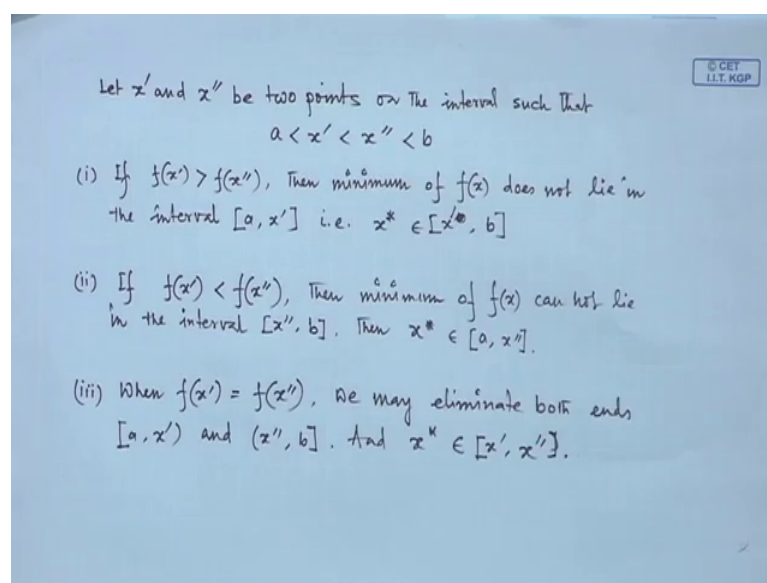 © CET
I.I.T. KGP
Let x' and x'' be two points on The interval such that
a < x' < x'' < b
(i) If f(x') > f(x''), Then minimum of f(x) does not lie in
the interval [a, x'] i.e. x* ∈ [x', b]
(ii) If f(x') < f(x''), Then minimum of f(x) can not lie
in the interval [x'', b]. Then x* ∈ [a, x''].
(iii) When f(x') = f(x''), we may eliminate both ends
[a, x') and (x'', b]. And x* ∈ [x', x''].